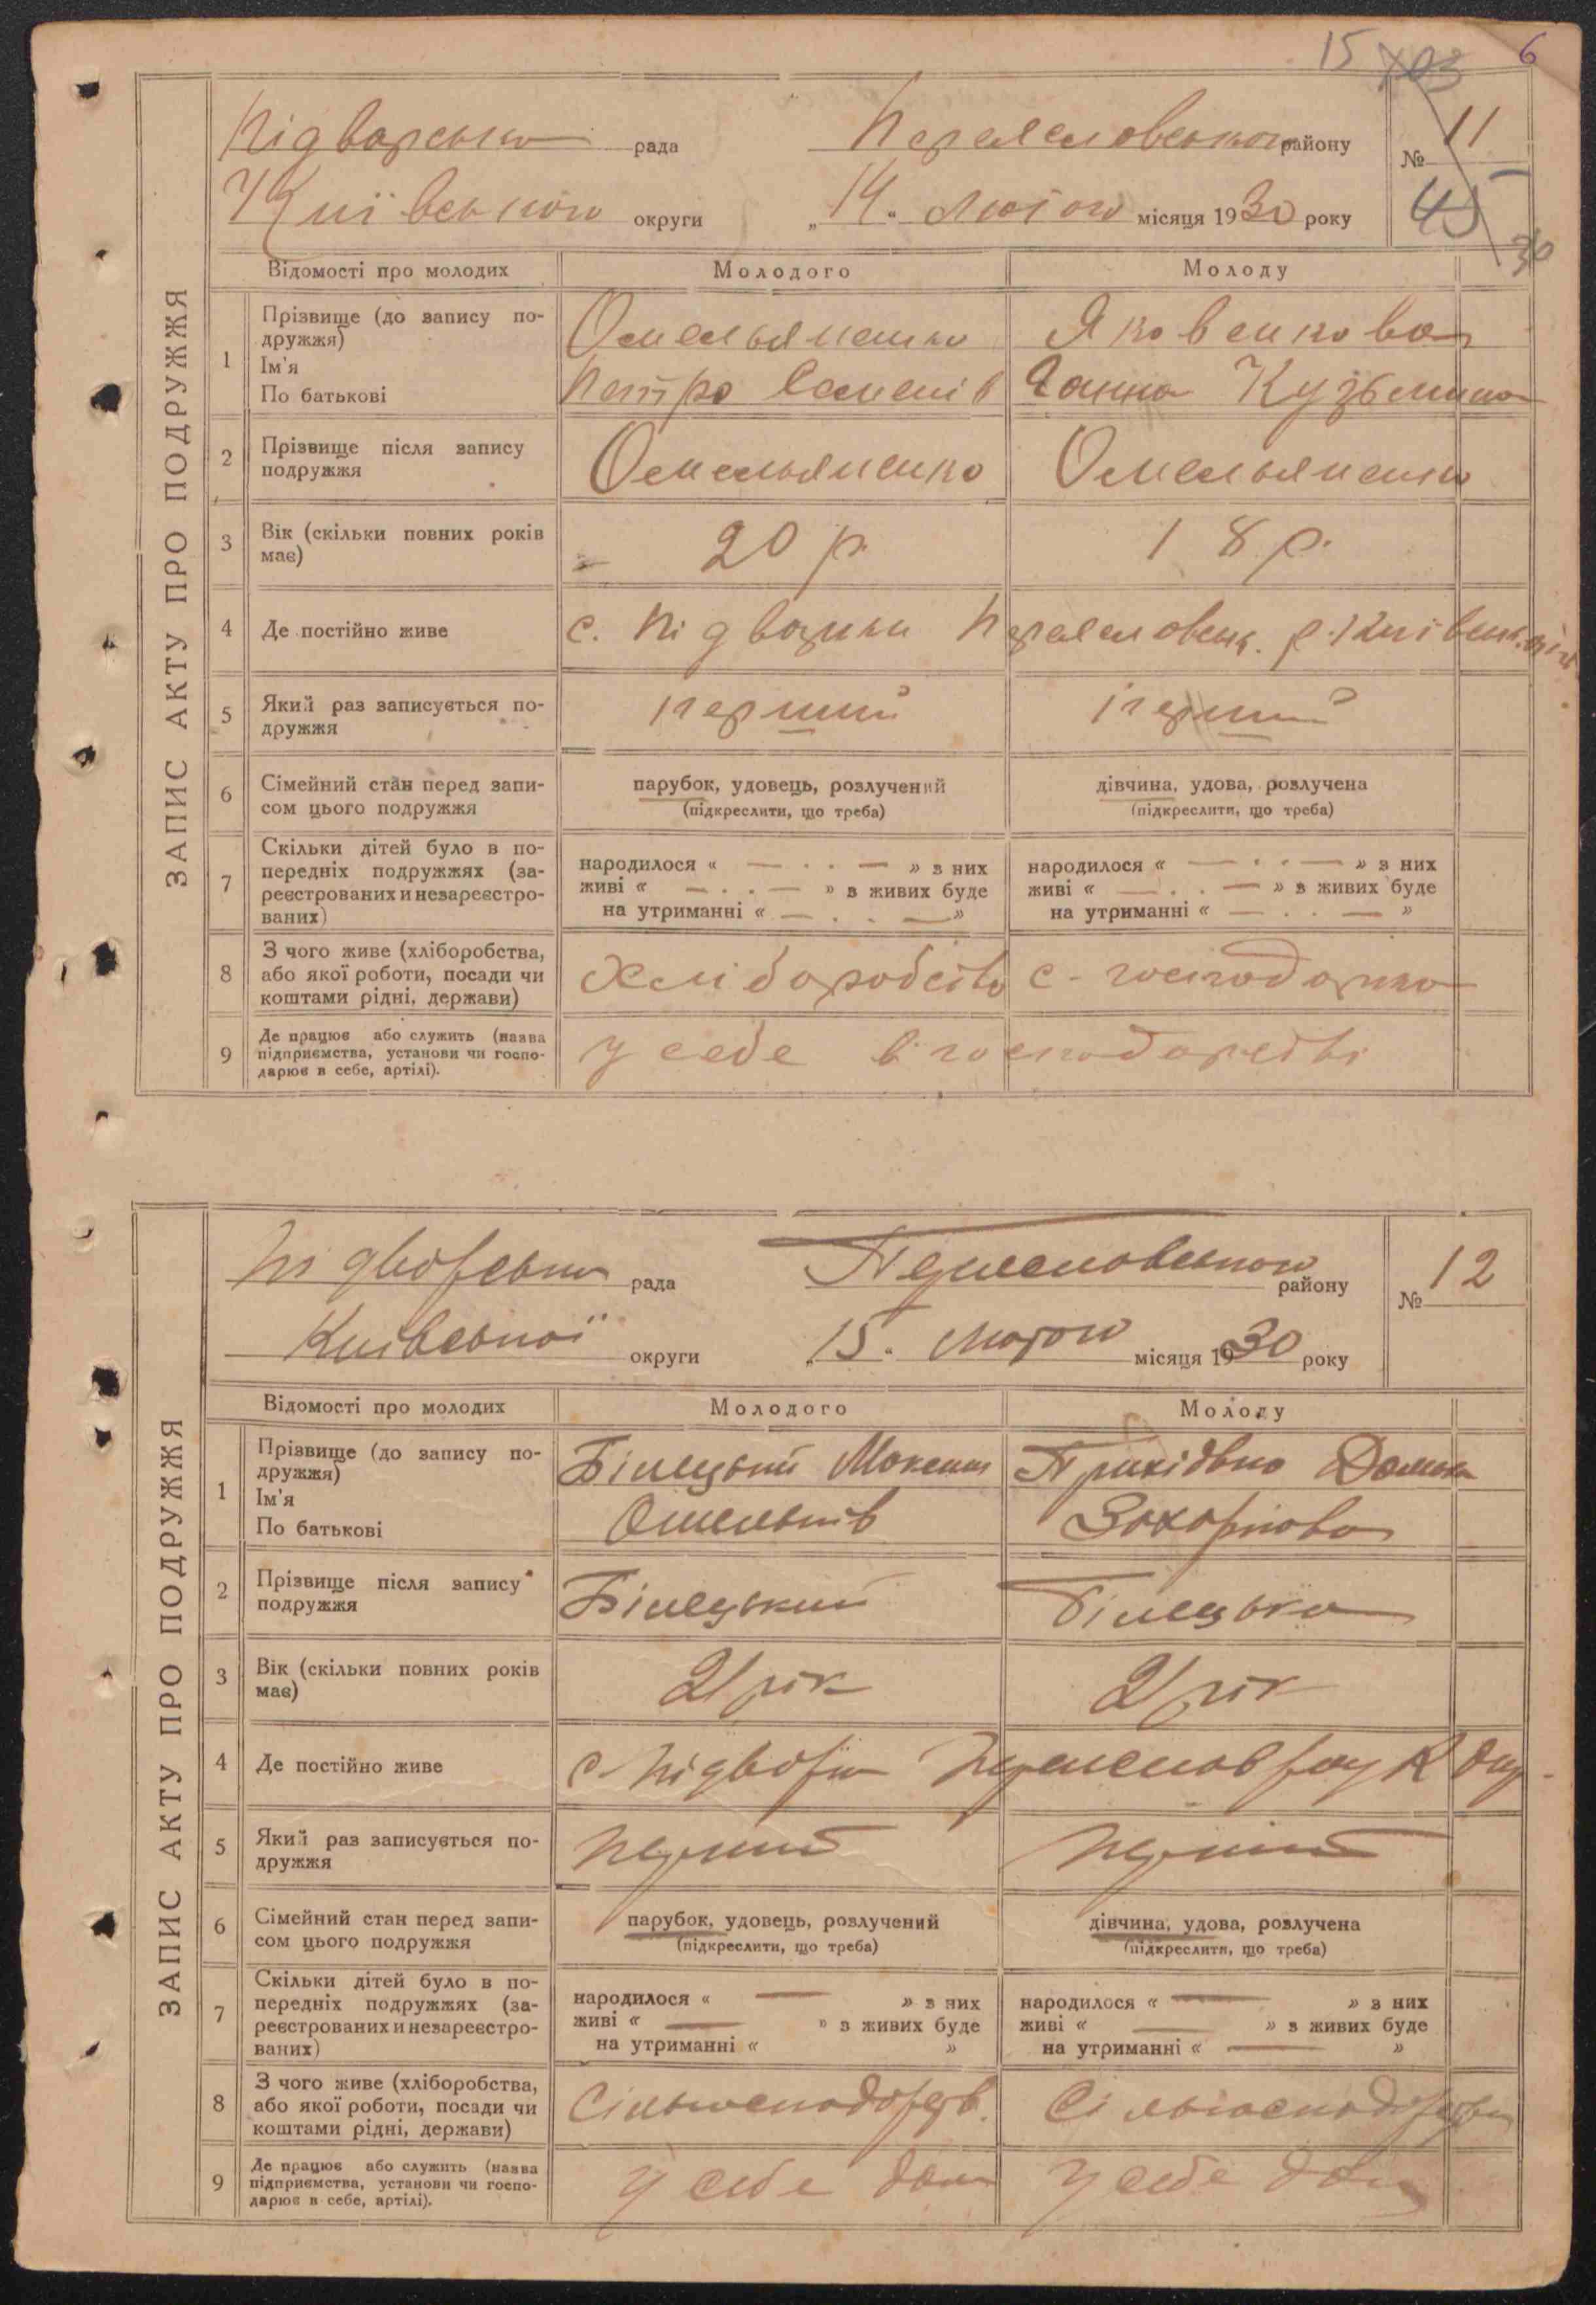 15 703 6
ЗАПИС АКТУ ПРО ПОДРУЖЖЯ
Підварська рада Переясловського району № 11
Київського округи „14“ Лютого місяця 1930 року 45
30
Відомості про молодих Молодого Молоду
1 Прізвище (до запису по-
дружжя) Омельяненко Яковенкова
Ім'я
По батькові Петро Семенів Ганна Кузьмина
2 Прізвище після запису
подружжя Омельяненко Омельяненко
3 Вік (скільки повних років
має) 20 р. 18 р.
4 Де постійно живе с. Підварки Переясловськ. р. Київськ.
5 Який раз записується по-
дружжя перший перший
6 Сімейний стан перед запи-
сом цього подружжя
парубок, удовець, розлучений дівчина, удова, розлучена
(підкреслити, що треба) (підкреслити, що треба)
7 Скільки дітей було в по-
передніх подружжях (за-
реєстрованих и незареєстро-
ваних)
народилося « — » з них народилося « — » з них
живі « — » з живих буде живі « — » з живих буде
на утриманні « — » на утриманні « — »
8 З чого живе (хліборобства,
або якої роботи, посади чи
коштами рідні, держави)
Хліборобство с-господарка
9 Де працює або служить (назва
підприємства, установи чи госпо-
дарює в себе, артілі).
у себе в господарстві
ЗАПИС АКТУ ПРО ПОДРУЖЖЯ
Підворська рада Переясловського району № 12
Київської округи „15“ Лютого місяця 1930 року
Відомості про молодих Молодого Молоду
1 Прізвище (до запису по-
дружжя) Білецький Максим Прихідько Домка
Ім'я
По батькові Омельків Захарівова
2 Прізвище після запису
подружжя Білецький Білецька
3 Вік (скільки повних років
має) 21 рік 21 рік
4 Де постійно живе с. Підворки Переяслов рай К окр
5 Який раз записується по-
дружжя перший перший
6 Сімейний стан перед запи-
сом цього подружжя
парубок, удовець, розлучений дівчина, удова, розлучена
(підкреслити, що треба) (підкреслити, що треба)
7 Скільки дітей було в по-
передніх подружжях (за-
реєстрованих и незареєстро-
ваних)
народилося « — » з них народилося « — » з них
живі « — » з живих буде живі « — » з живих буде
на утриманні « » на утриманні « — »
8 З чого живе (хліборобства,
або якої роботи, посади чи
коштами рідні, держави)
9 Де працює або служить (назва
підприємства, установи чи госпо-
дарює в себе, артілі).
у себе дома у себе дома